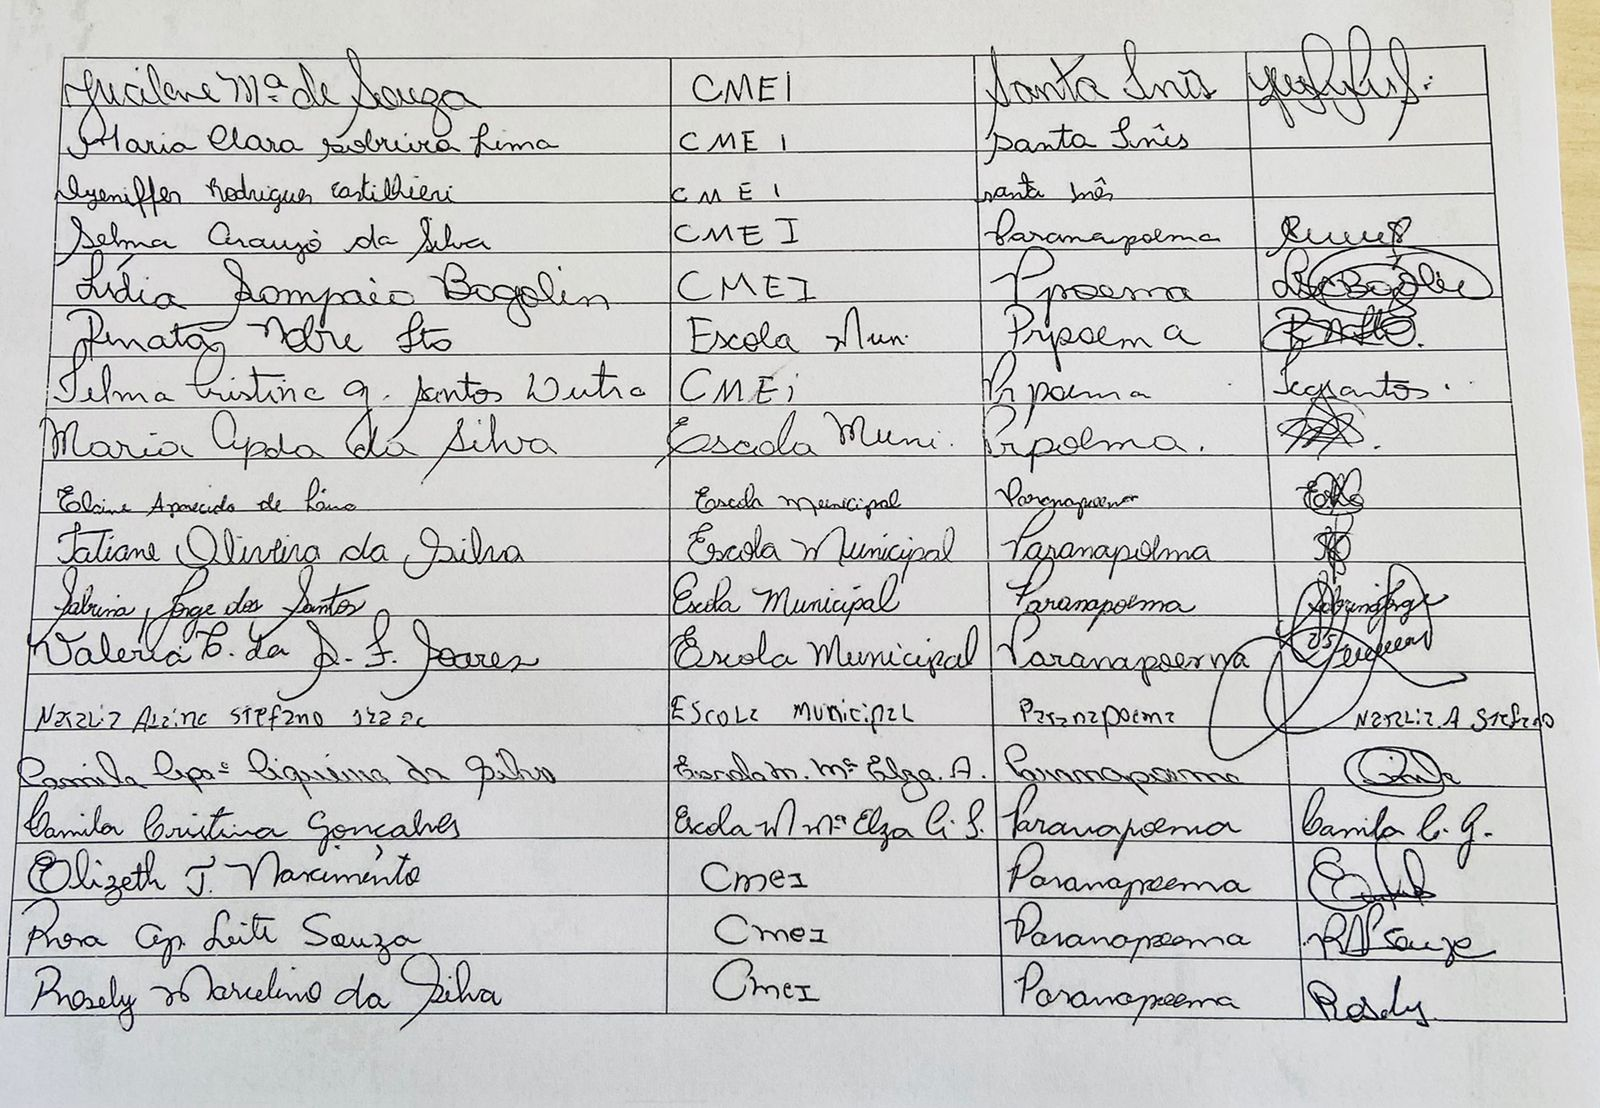 Jucilene Mª de Souza CMEI Santa Inês
Maria Clara Sobreira Lima CMEI Santa Inês
Dyeniffer Rodrigues Castilhieri CMEI Santa Inês
Selma Araujo da Silva CMEI Paranapoema
Lídia Sompaio Bogolin CMEI Ppoema
Renata Nobre Sto Escola Mun. Prpoema
Telma Cristina G. Santos Dutra CMEi Prpoema
Maria Apda da Silva Escola Muni. Prpoema.
Elaine Aparecida de Lima Escola Municipal Paranapoema
Tatiane Oliveira da Silva Escola Municipal Paranapoema
Sabrina Jorge dos Santos Escola Municipal Paranapoema Sabrina Jorge
Valéria C. da S. F. Soares Escola Municipal Paranapoema
Natalia Alaine Stefano Escola Municipal Paranapoema Natalia. A Stefano
Camila Apª Siqueira da Silva Escola M. Mª Elza. A. Paranapoema
Camila Cristina Gonçalves Escola M Mª Elza A. S. Paranapoema Camila C. G.
Elizeth T. Nascimento CmeI Paranapoema
Rosa Ap. Leite Souza CmeI Paranapoema
Rosely Marcelino da Silva CmeI Paranapoema Rosely